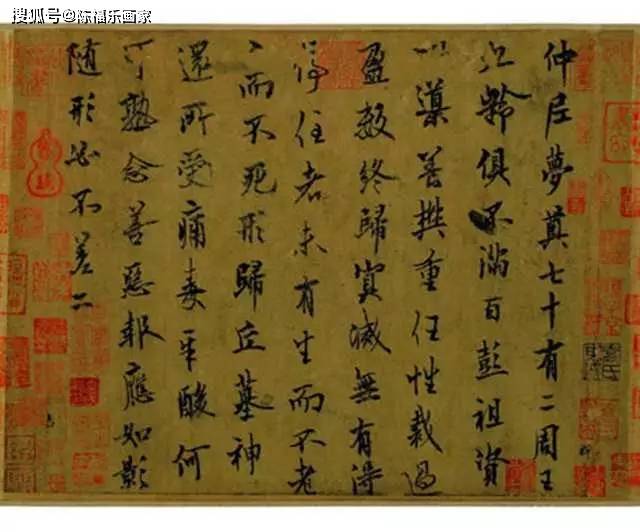 搜狐号@陈福乐画家
仲尼夢奠七十有二周王
九齡俱不滿百彭祖資
以導養樊重任性裁過
盈數終歸冥滅無有得
停住者未有生而不老
〻而不死形歸丘墓神
還所受痛毒辛酸何
可熟念善惡報應如影
隨形必不差二